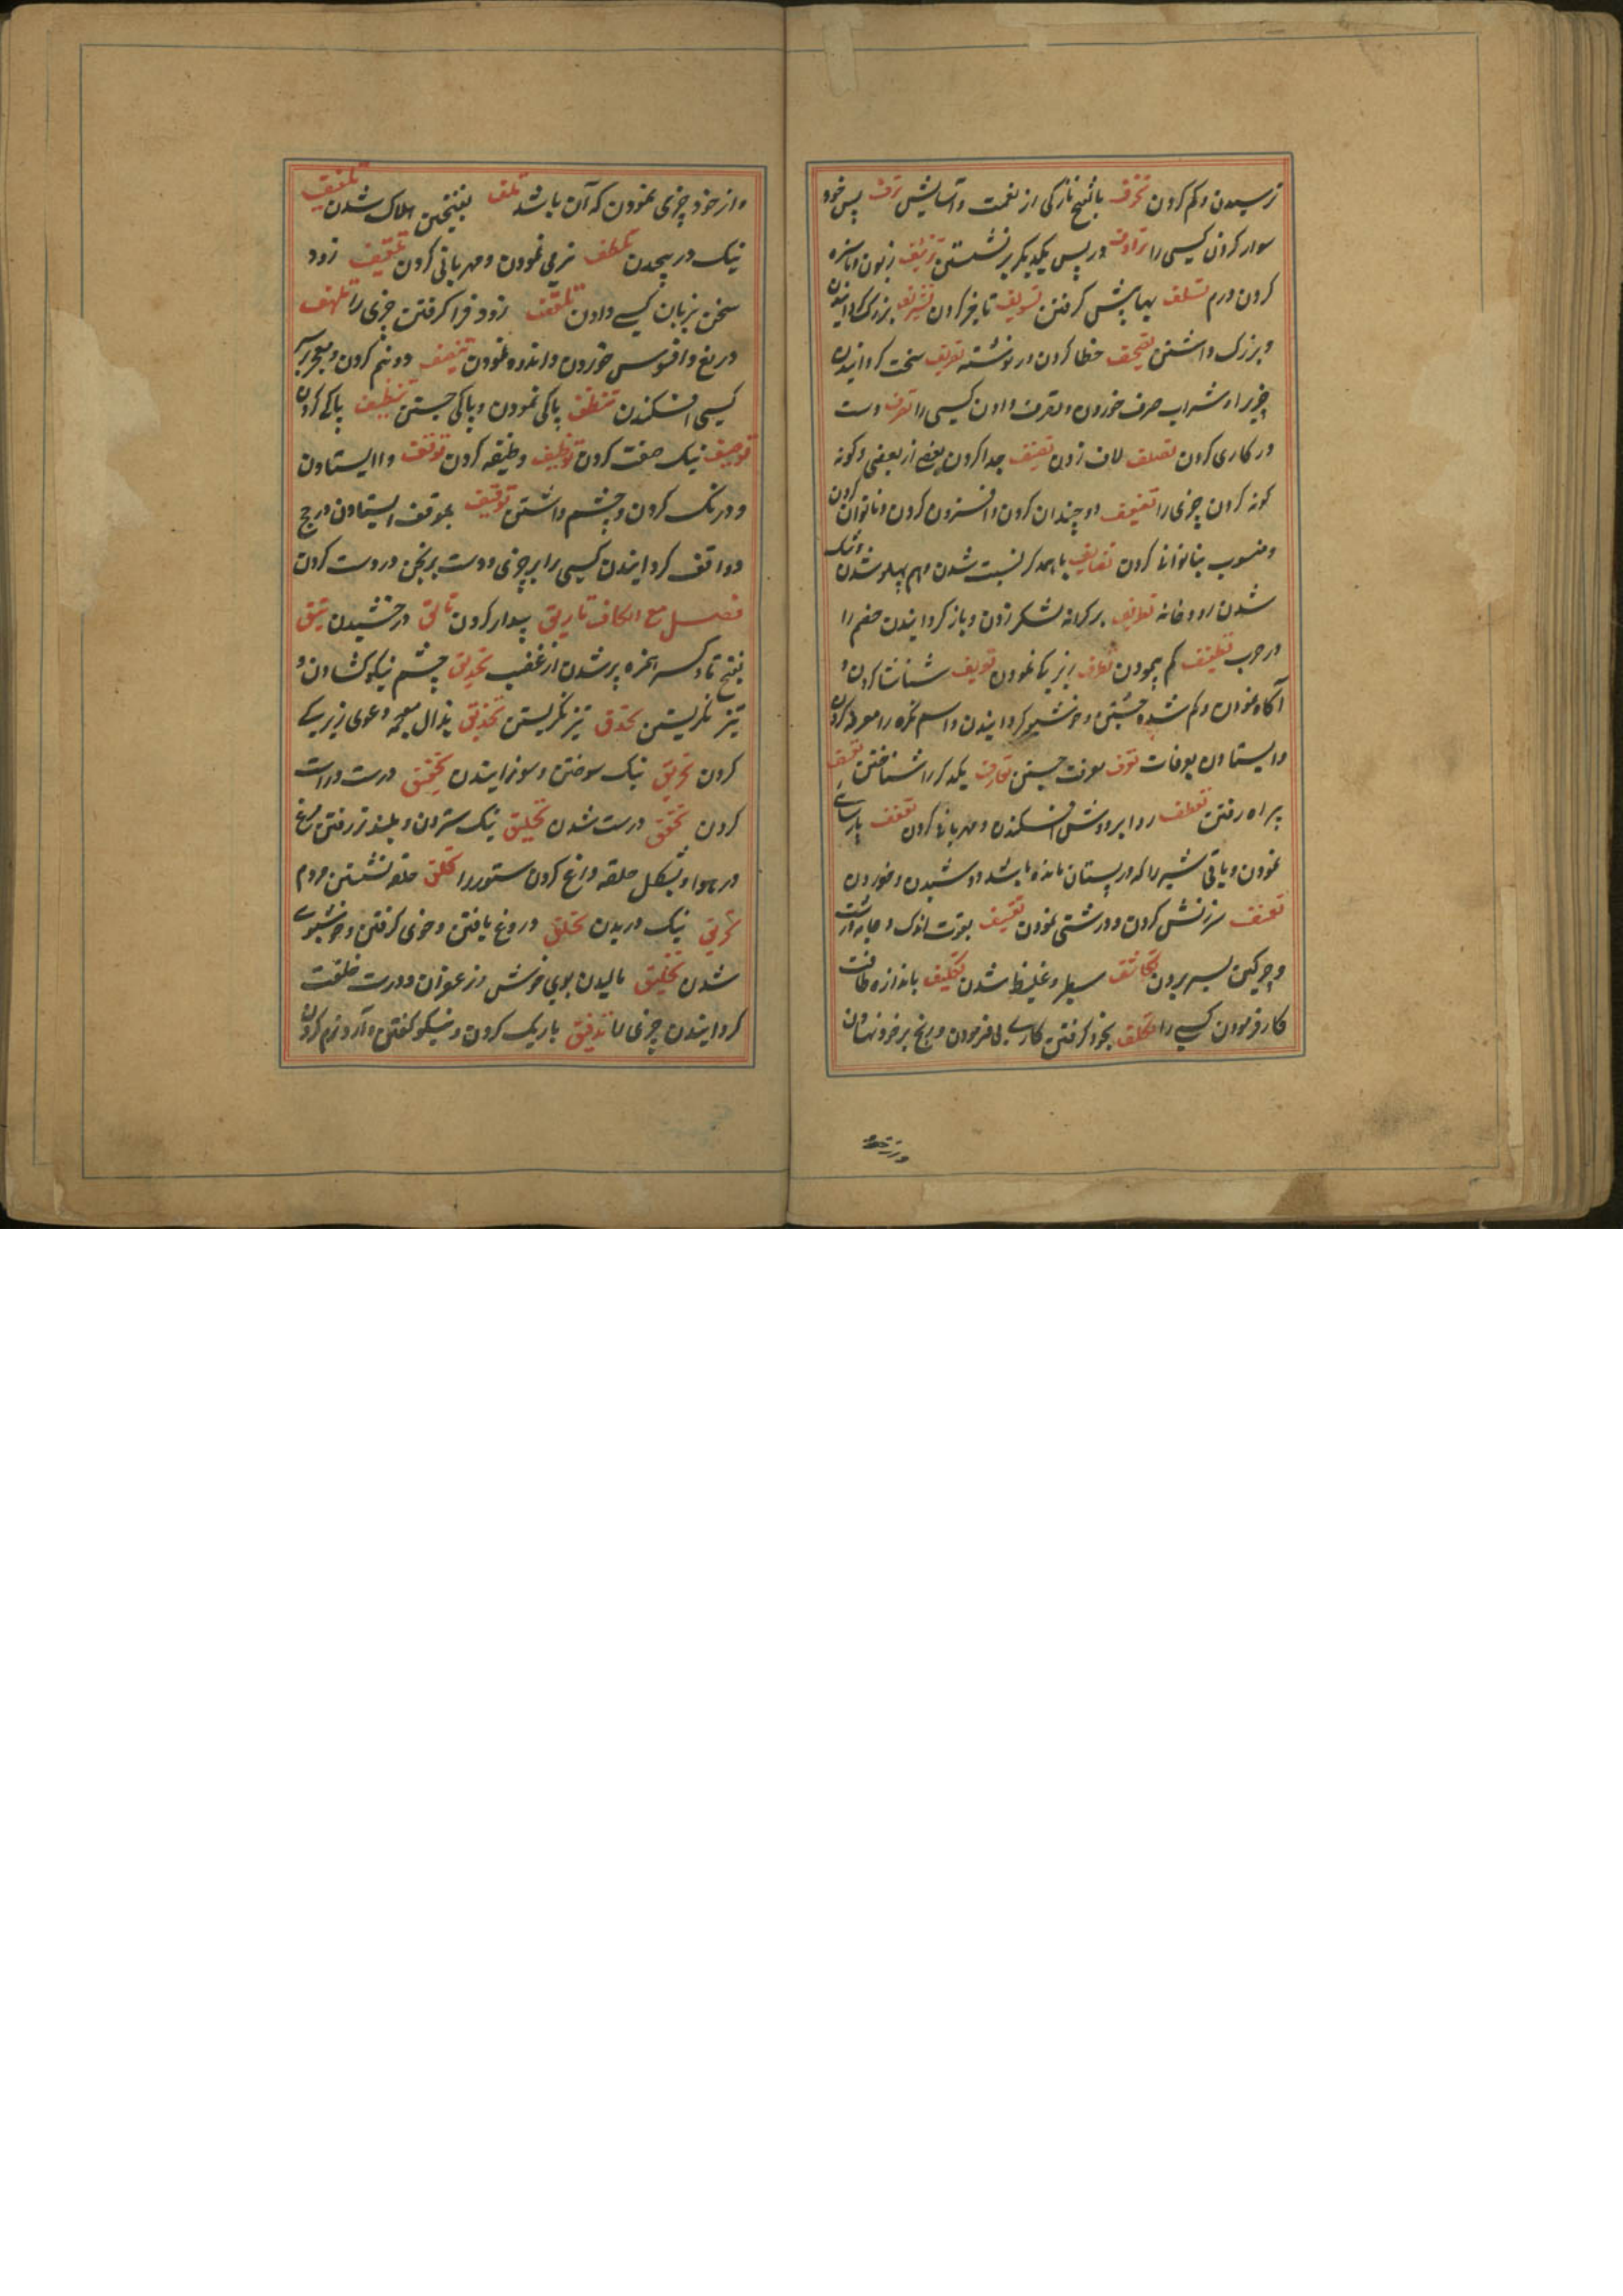 ترسیدن و کم کردن تخرف بالفتح نازکی از نعمت و آسایش ترف پس خود
سوار کردن کسی را ترادف در پس یکدیگر برنشستن تزئیف زبون و ناسره
کردن درم تسلف بها پیش گرفتن تسویف تاخیر کردن تشریف بزرگ گردانیدن
و بزرک داشتن تصحیف خطا کردن در نوشته تصریف سخت گردانیدن
چیز را و شراب صرف خوردن و تصرف دادن کسی را تصرف دست
در کاری کردن تصلف لاف زدن تصنیف جدا کردن بعضی از بعضی و گونه
گونه کردن چیزی را تضعیف دو چندان کردن و افزون کردن و ناتوان کردن
و منسوب بناتوانا کردن تضایف با همدگر نسبت شدن و بهم پهلو شدن و تنک
شدن رودخانه تطریف بر کرانه لشکر زدن و باز گردانیدن خصم را
در حرب تطفیف کم پیمودن تظرف زیرکی نمودن تعریف شناسا کردن و
آگاه نمودن و گم شده جستن و خوشبو گردانیدن و اسم نکره را معرفه کردن
و ایستادن بعرفات تعرف معرفت جستن تعارف یکدگر را شناختن تعسف
بیراه رفتن تعطف ردا بر دوش افکندن و مهربانی کردن تعفف پارسایی
نمودن و باقی شیر را که در پستان مانده باشد دوشیدن و خوردن
تعنف سرزنش کردن و درشتی نمودن تقشف بقوت اندک و جامه درشت
و چرکین بسر بردن تکاثف سطبر و غلیظ شدن تکلیف باندازه طاقت
کار فرمودن کسی را تکلف بخود گرفتن کاری بی فرمودن و رنج بر خود نهادن
و از خود چیزی نمودن که آن باشد تلف بفتحتین هلاک شدن تلفیف
نیک در پیچیدن تلطف نرمی نمودن و مهربانی کردن تلقیف زود
سخن بزبان کسی دادن تلقف زود فرا گرفتن چیزی را تلهف
دریغ و افسوس خوردن و اندوه نمودن تنصیف دو نیم کردن و معجر بر سر
کسی افکندن تنظف پاکی نمودن و پاکی جستن تنظیف پاک کردن
توصیف نیک صفت کردن توظیف وظیفه کردن توقف واایستادن
و درنک کردن و چشم داشتن توقیف بموقف ایستادن در حج
و واقف گردانیدن کسی را بر چیزی و دست برنجن در دست کردن
فصل مع القاف تاریق بیدار کردن تالق درخشیدن تئق
بفتح تا و کسر همزه پر شدن از غضب تحدیق چشم نیکو گشادن و
تیز نگریستن تحدق تیز نگریستن تحذیق بذال معجمه دعوی زیرکی
کردن تحریق نیک سوختن و سوزانیدن تحقیق درست و راست
کردن تحقق درست شدن تحلیق نیک ستردن و بلند تر رفتن مرغ
در هوا و بشکل حلقه داغ کردن ستور را تحلق حلقه نشستن مردم
تخریق نیک دریدن تخلق دروغ بافتن و خوی گرفتن و خوشبوی
شدن تخلیق مالیدن بوی خوش و زعفران و درست خلقت
گردانیدن چیزی را تدقیق باریک کردن و نیکو کوفتن و آرد نرم کردن